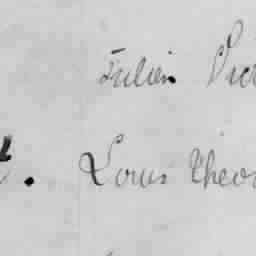 Julien Vic
t. Louis Theo